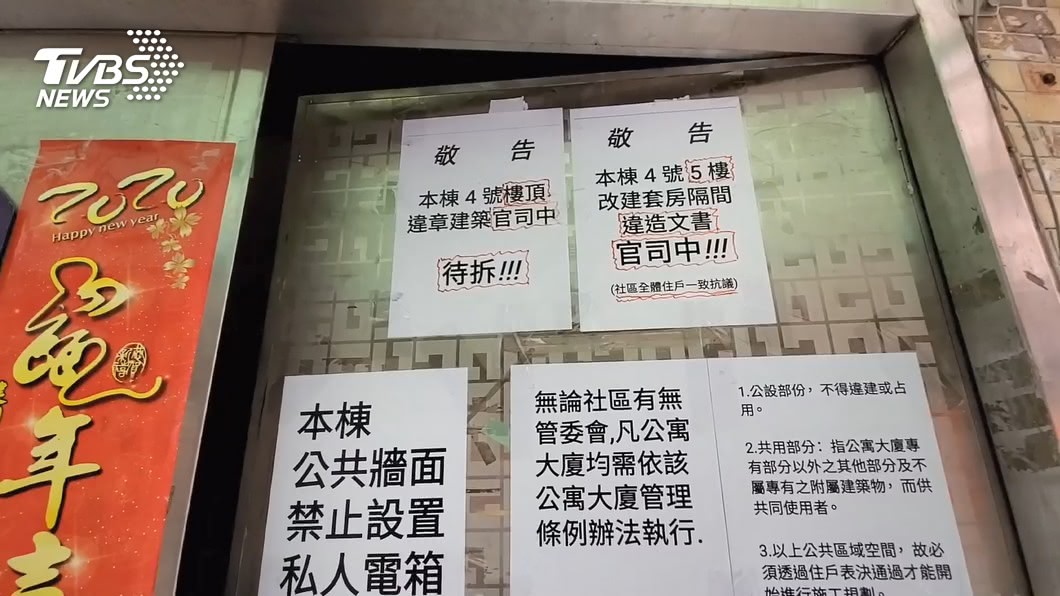 TVBS
NEWS
2020
Happy new year
年
吉
敬 告
本棟4號樓頂
違章建築官司中
待拆!!!
敬 告
本棟4號5樓
改建套房隔間
違造文書
官司中!!!
(社區全體住戶一致抗議)
本棟
公共牆面
禁止設置
私人電箱
無論社區有無
管委會,凡公寓
大廈均需依該
公寓大廈管理
條例辦法執行.
1.公設部份，不得違建或占
用。
2.共用部分：指公寓大廈專
有部分以外之其他部分及不
屬專有之附屬建築物，而供
共同使用者。
3.以上公共區域空間，故必
須透過住戶表決通過才能開
始進行施工規劃。